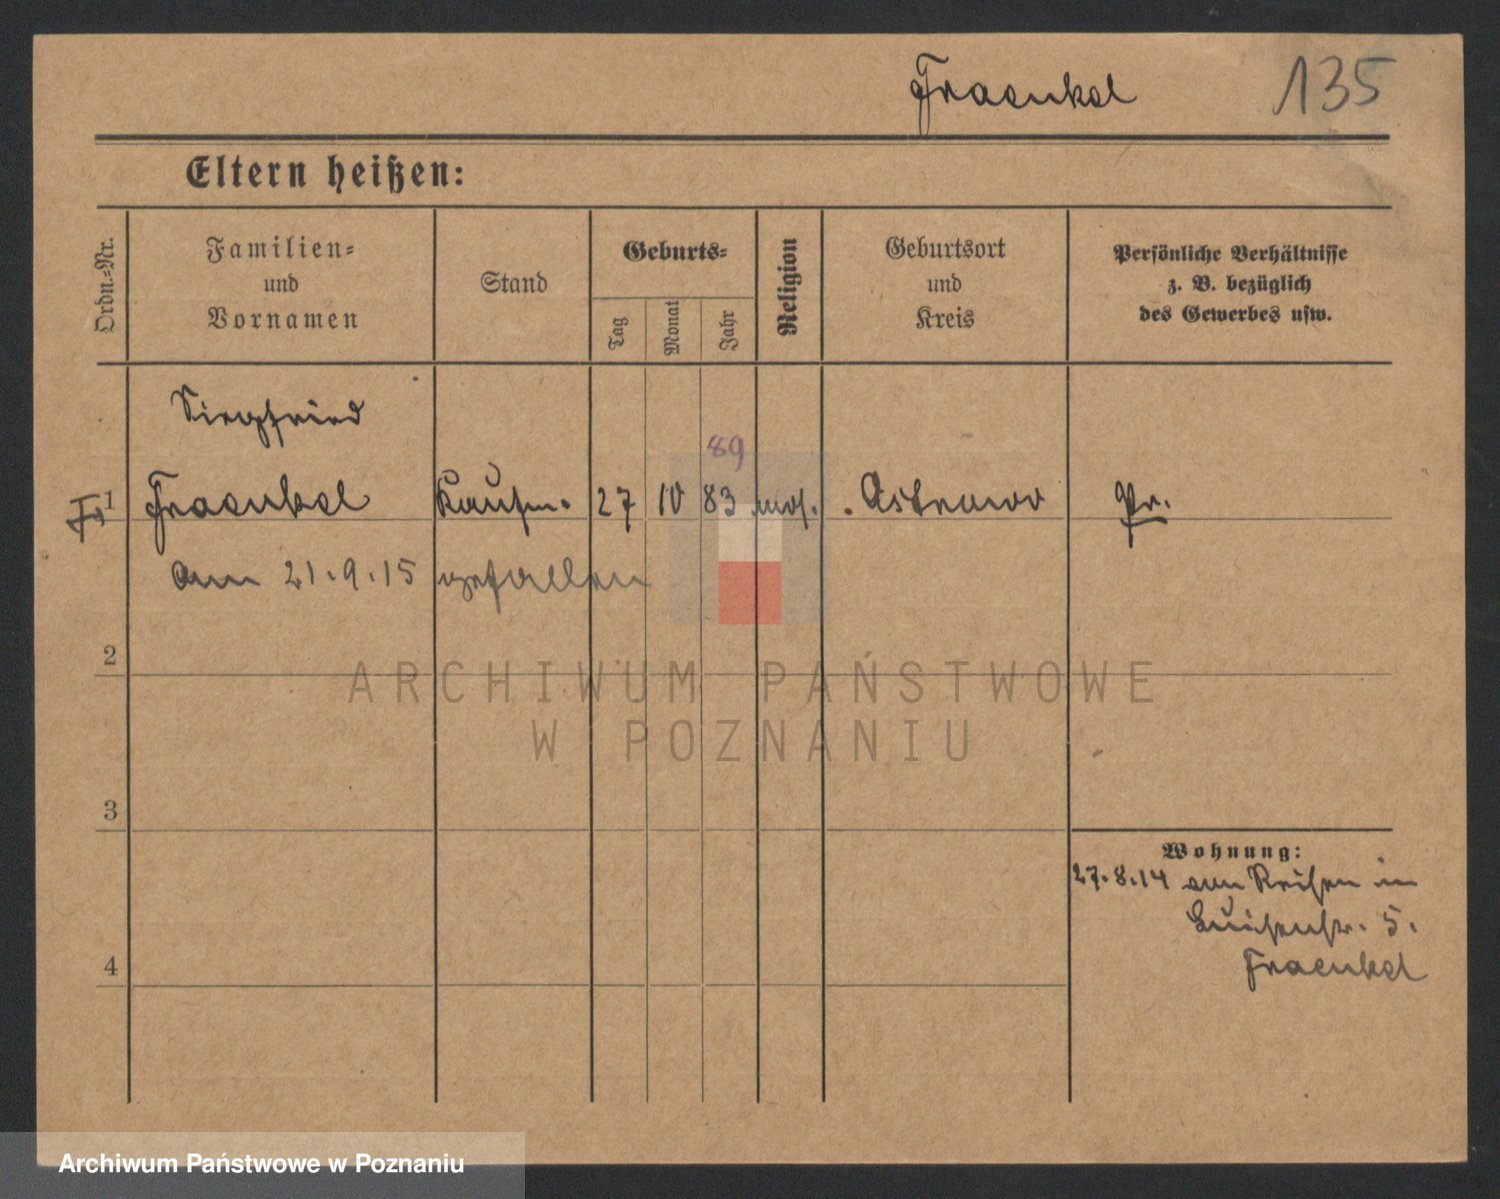 Fraenkel 135
Eltern heißen:
Ordn.-Nr.
Familien-
und
Vornamen
Stand
Geburts-
Tag
Monat
Jahr
Religion
Geburtsort
und
Kreis
Persönliche Verhältnisse
z. B. bezüglich
des Gewerbes usw.
Siegfried
89
1 Fraenkel Kaufm. 27 10 83 mos. Ostrowo Pr.
am 21.9.15 gefallen
2
ARCHIWUM PAŃSTWOWE
W POZNANIU
3
Wohnung:
27.8.14 von Reisen in
Luisenstr. 5.
Fraenkel
4
Archiwum Państwowe w Poznaniu